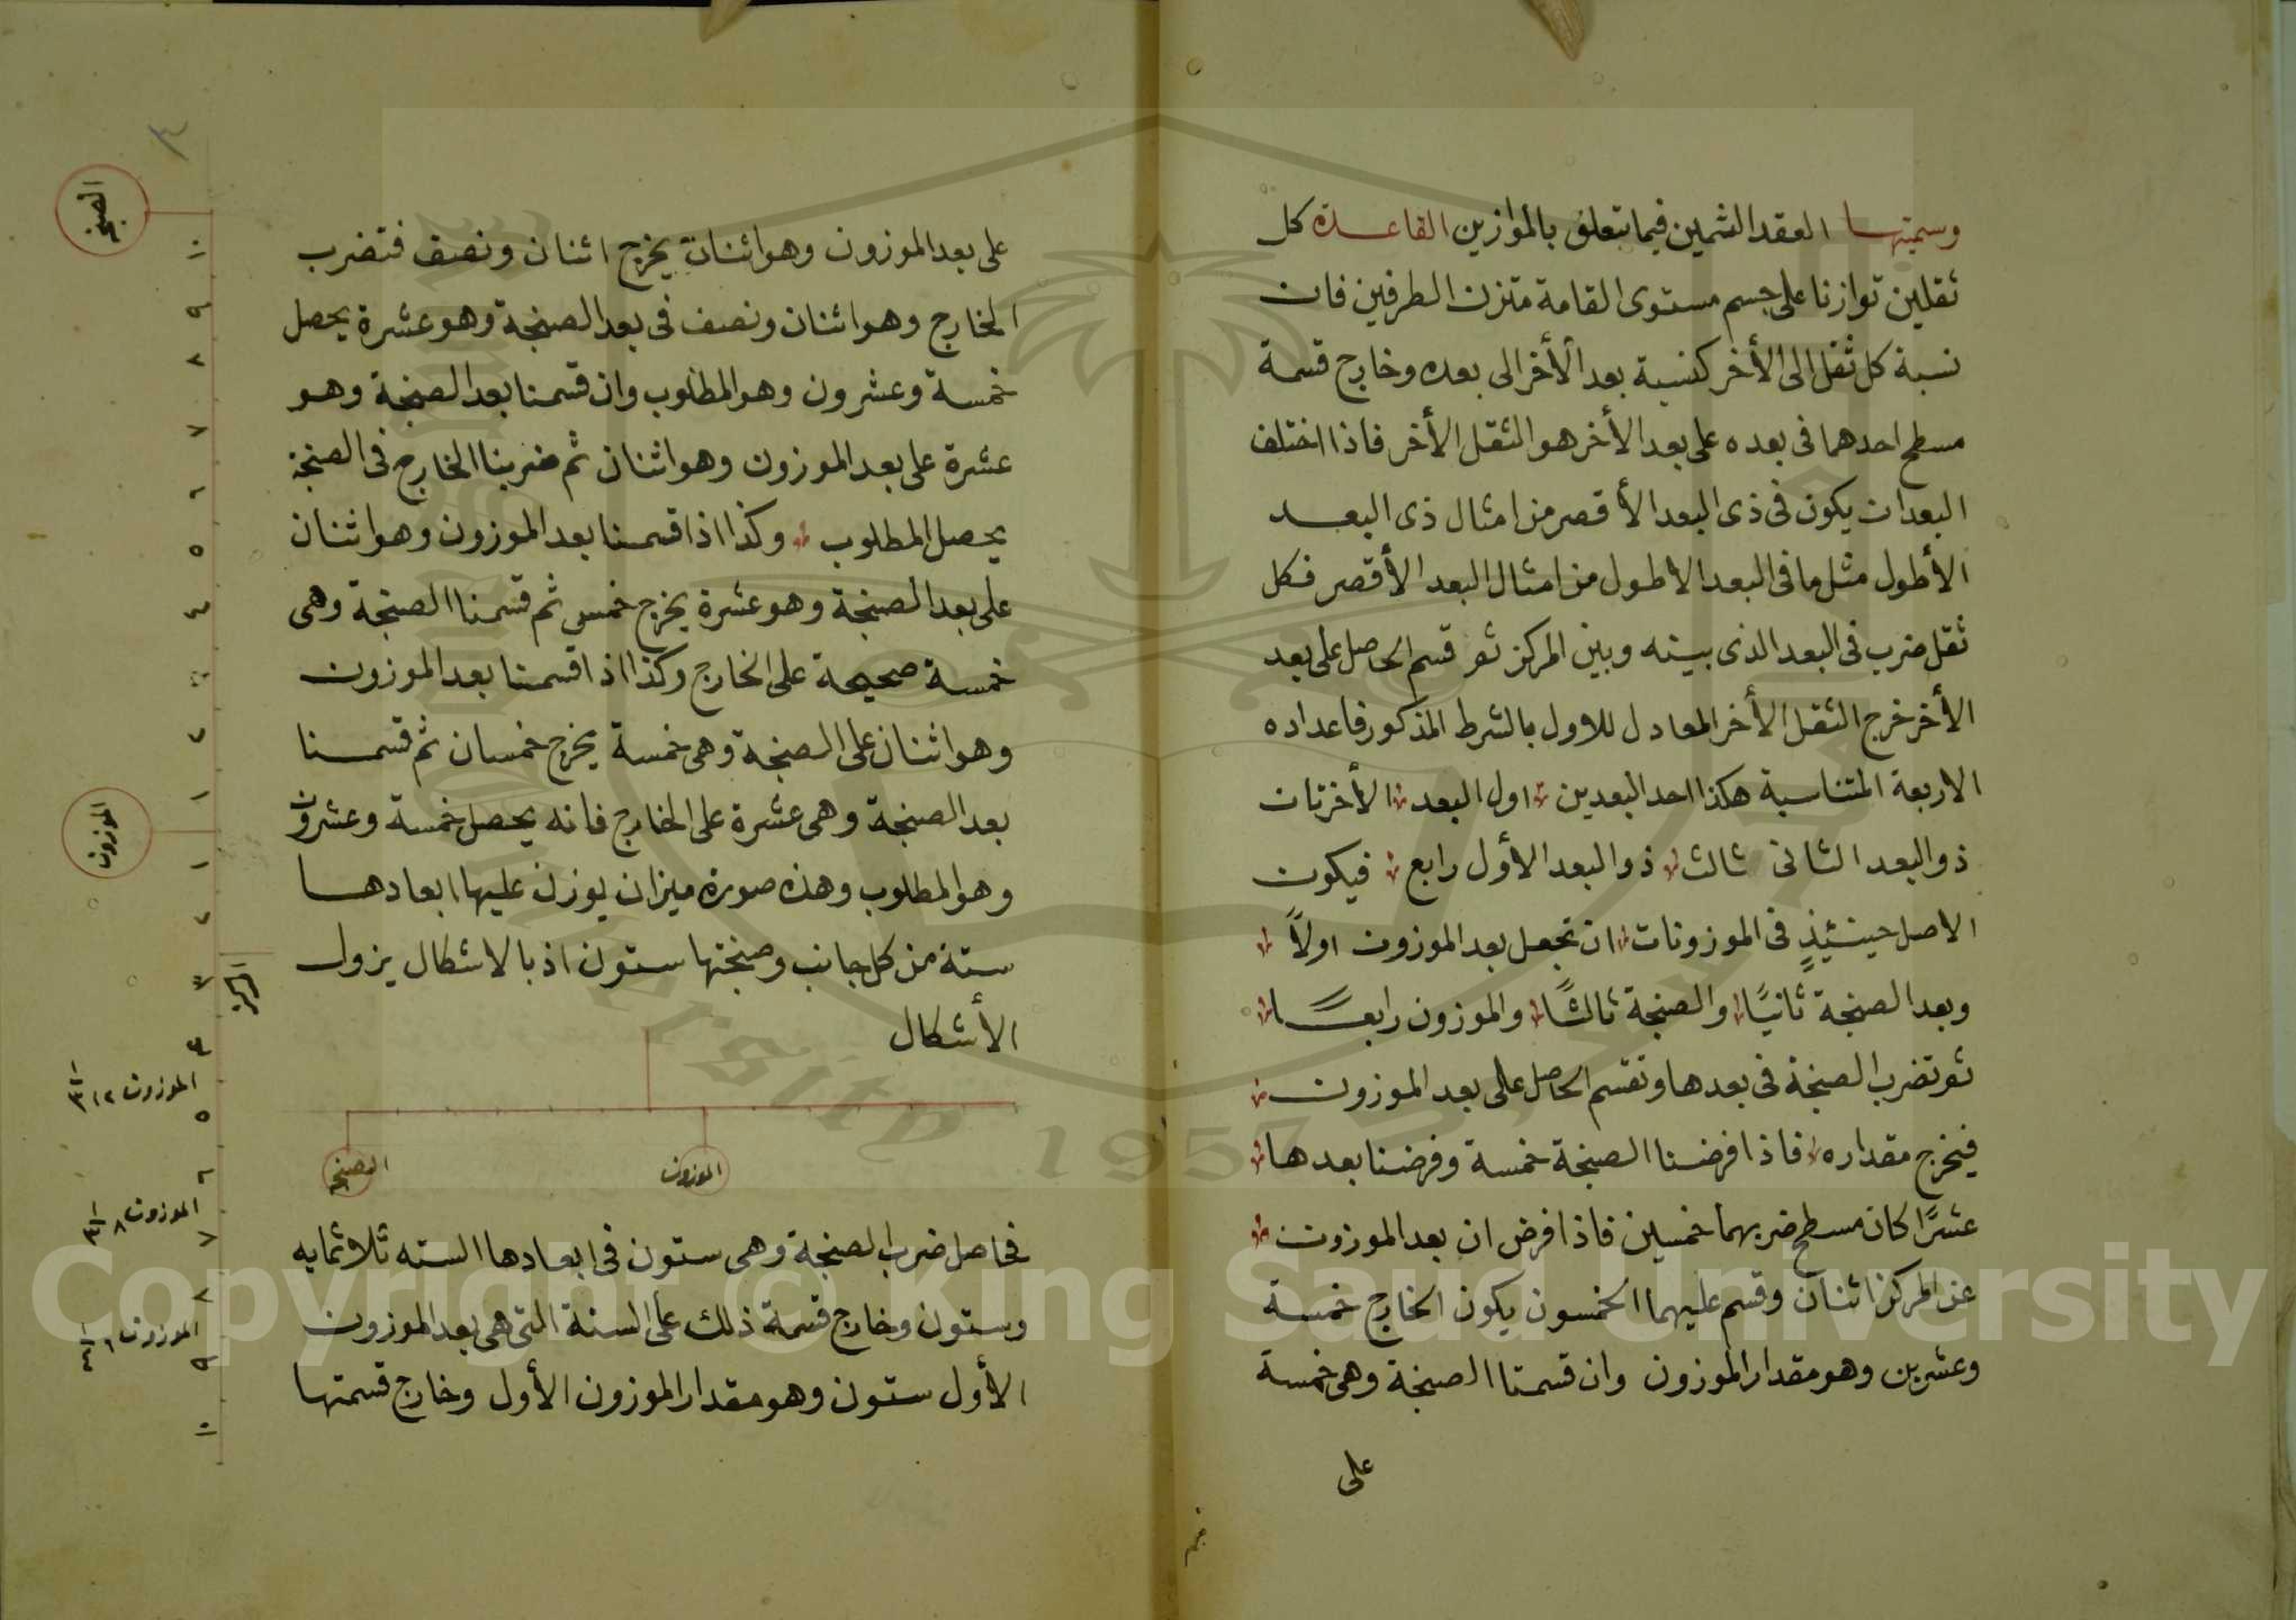 وسميتها العقد الثمين فيما يتعلق بالموازين القاعدة كل
ثقلين توازنا على جسم مستوى القامة متزن الطرفين فان
نسبة كل ثقل الى الأخر كنسبة بعد الأخر الى بعده وخارج قسمة
مسطح احدهما فى بعده على بعد الأخر هو الثقل الأخر فاذا اختلف
البعدان يكون فى ذى البعد الأقصر من امثال ذى البعد
الأطول مثل ما فى البعد الاطول من امثال البعد الأقصر فكل
ثقل ضرب فى البعد الذى بينه وبين المركز ثم قسم الحاصل على بعد
الأخر خرج الثقل الأخر المعادل للاول بالشرط المذكور فاعداده
الاربعة المتناسبة هكذا احد البعدين اول البعد الأخر ثان
ذو البعد الثانى ثالث ذو البعد الأول رابع فيكون
الاصل حينئيذٍ فى الموزونات ان تجعل بعد الموزون اولاً
وبعد الصنجة ثانيًا والصنجة ثالثًا والموزون رابعًا
ثم تضرب الصنجة فى بعدها وتقسم الحاصل على بعد الموزون
فيخرج مقداره فاذا فرضنا الصنجة خمسة وفرضنا بعدها
عشرًا كان مسطح ضربهما خمسين فاذا فرض ان بعد الموزون
عن المركز اثنان وقسم عليهما الخمسون يكون الخارج خمسة
وعشرين وهو مقدار الموزون وان قسمنا الصنجة وهى خمسة
على
على بعد الموزون وهو اثنان يخرج اثنان ونصف فتضرب
الخارج وهو اثنان ونصف فى بعد الصنجة وهو عشرة يحصل
خمسة وعشرون وهو المطلوب وان قسمنا بعد الصنجة وهو
عشرة على بعد الموزون وهو اثنان ثم ضربنا الخارج فى الصنجة
يحصل المطلوب وكذا اذا قسمنا بعد الموزون وهو اثنان
على بعد الصنجة وهو عشرة يخرج خمس ثم قسمنا الصنجة وهى
خمسة صحيحة على الخارج وكذا اذا قسمنا بعد الموزون
وهو اثنان على الصنجة وهى خمسة يخرج خمسان ثم قسمنا
بعد الصنجة وهى عشرة على الخارج فانه يحصل خمسة وعشرون
وهو المطلوب وهذه صورة ميزان يوزن عليها ابعادها
ستة من كل جانب وصنجتها ستون اذ بالاشكال يزول
الأشكال
الصنجة
الموزون
فحاصل ضرب الصنجة وهى ستون فى ابعادها الستة ثلاثمايه
وستون وخارج قسمة ذلك على الستة التى هى بعد الموزون
الأول ستون وهو مقدار الموزون الأول وخارج قسمتها
الصنجة
١٠
٩
٨
٧
٦
٥
٤
٣
٢
١
الموزون
١
٢
٣
المركز
٤
الموزون ١٢
٥
٦
الموزون ٨
٧
٨
الموزون ٦
٩
١٠
Copyright © King Saud University
1957